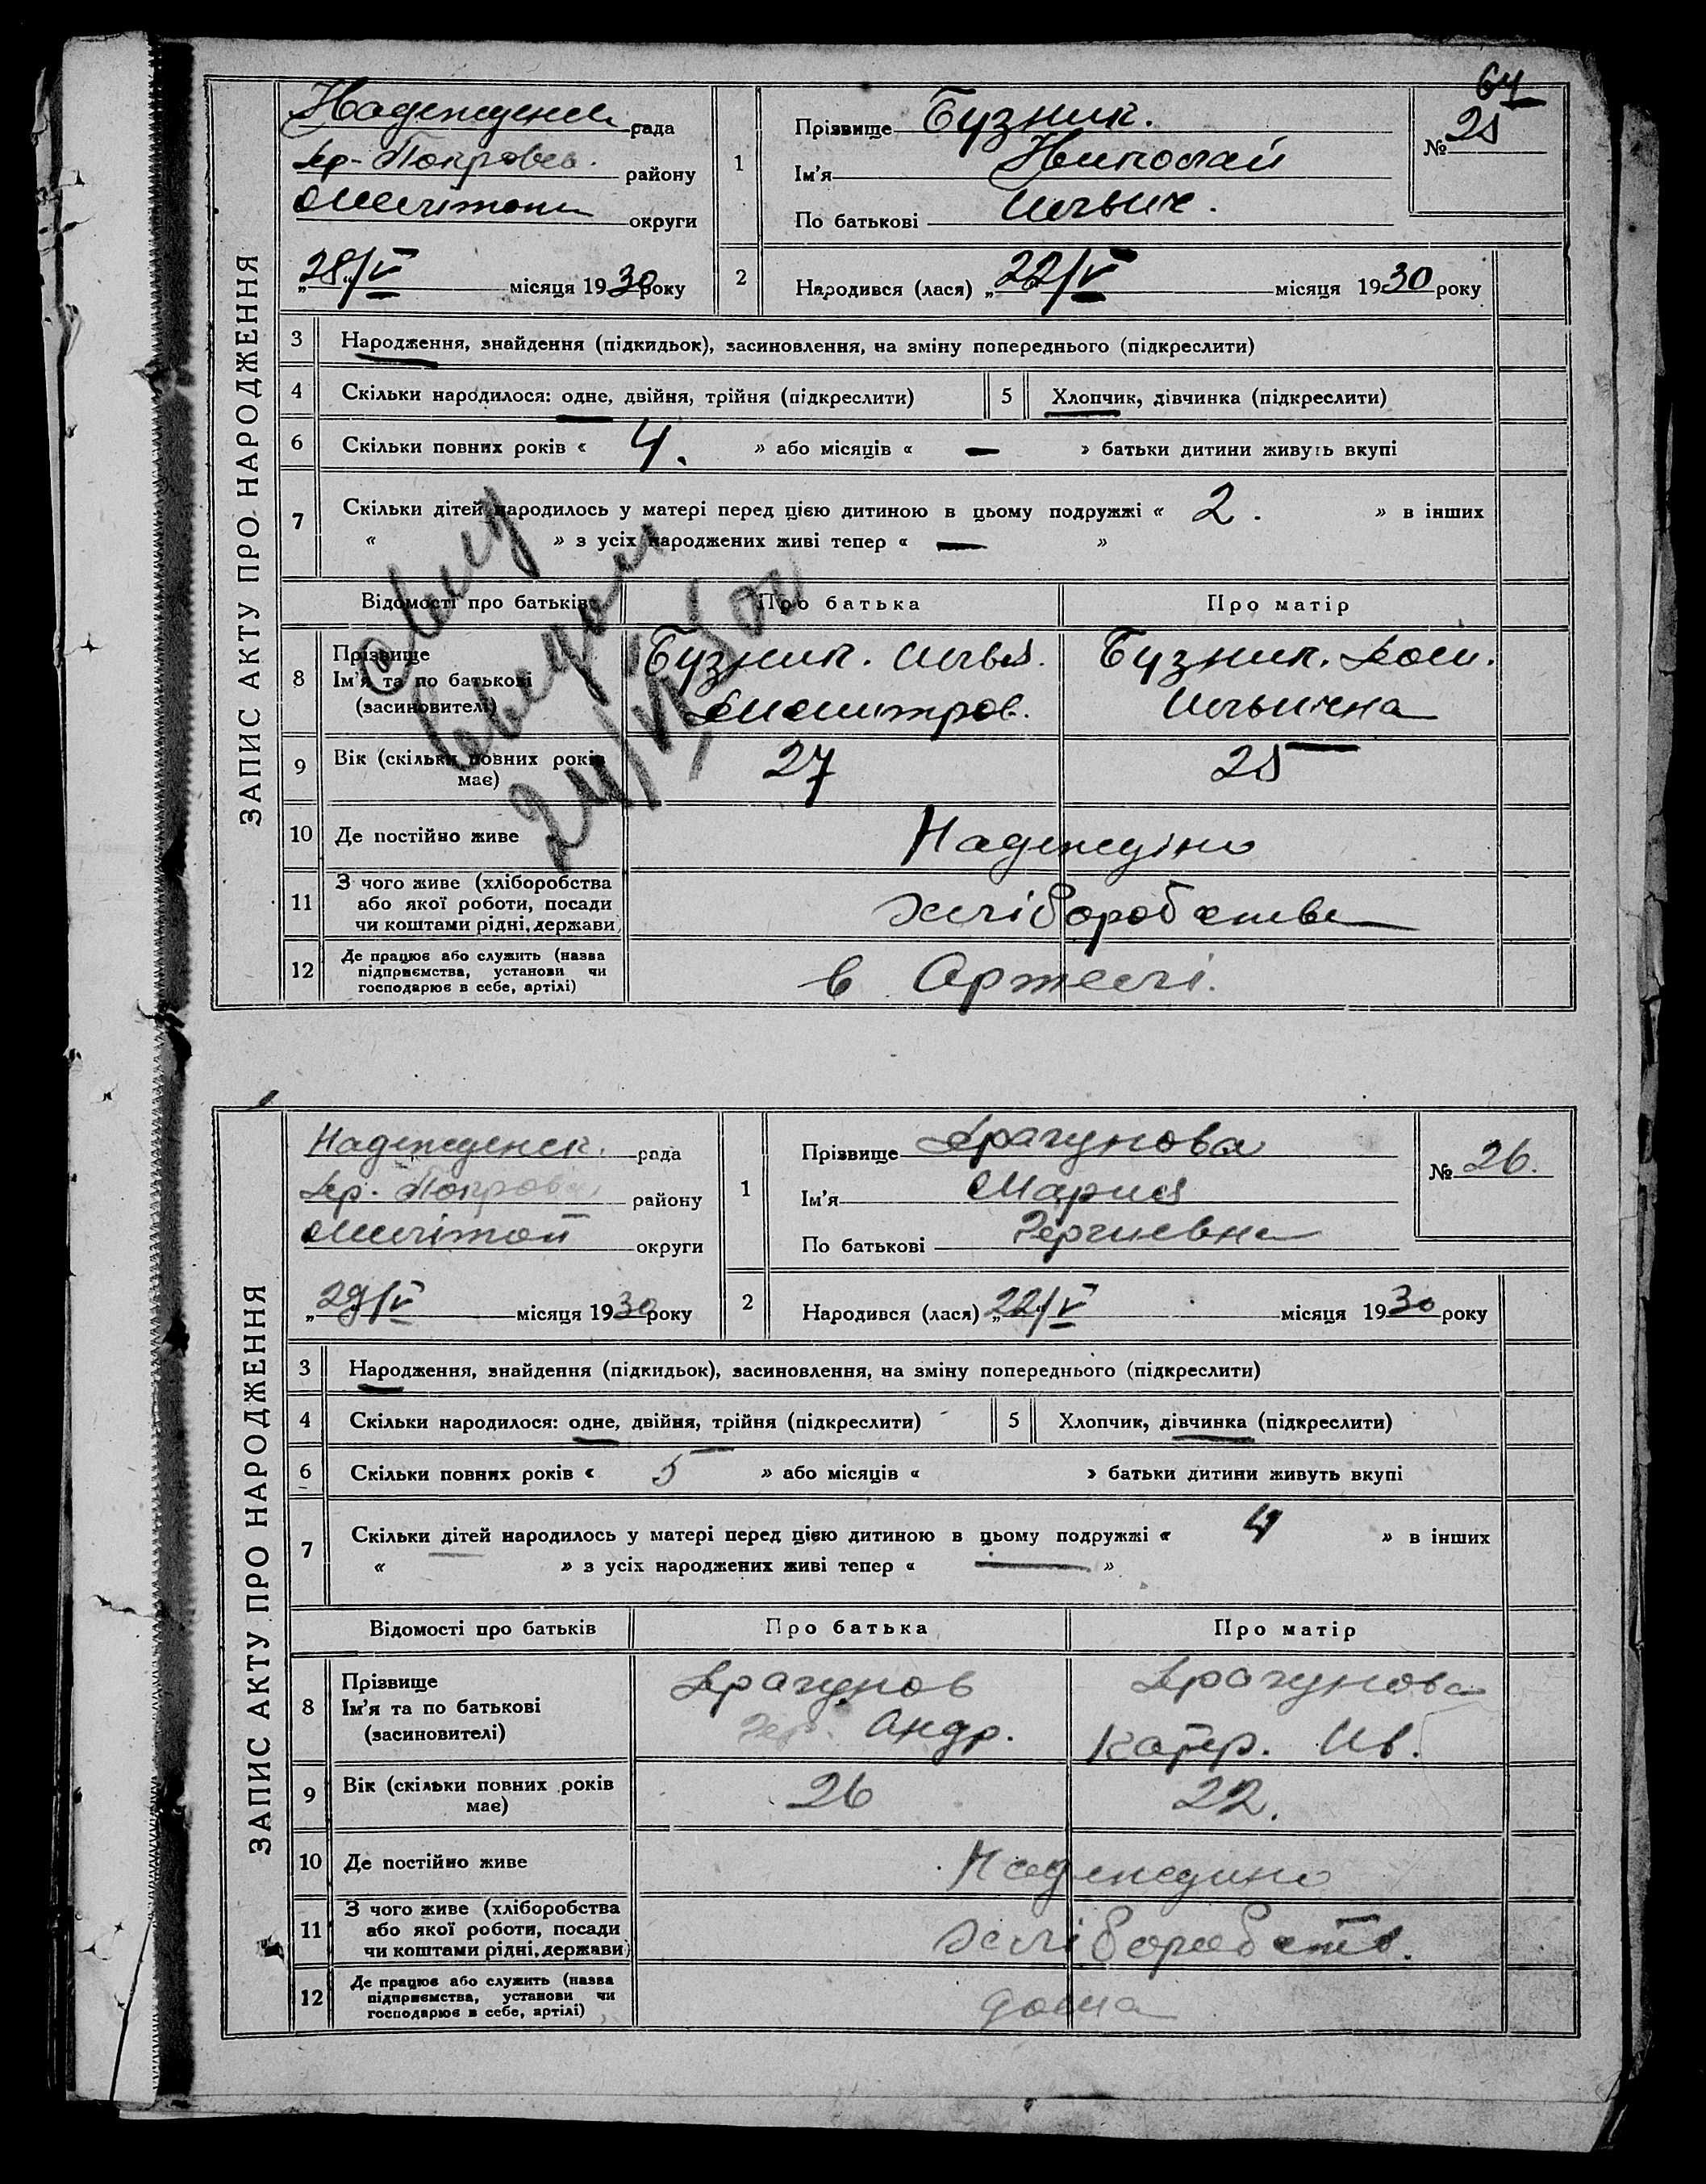 64
ЗАПИС АКТУ ПРО НАРОДЖЕННЯ
Надежденск рада
Др-Покровск. району
Мелітоп округи
„28/V місяця 1930 року
1
Прізвище Бузник.
Ім'я Николай
По батькові Ильич.
№ 25
2
Народився (лася) „22/V місяця 1930 року
3 Народження, знайдення (підкидьок), засиновлення, на зміну попереднього (підкреслити)
4 Скільки народилося: одне, двійня, трійня (підкреслити) 5 Хлопчик, дівчинка (підкреслити)
6 Скільки повних років « 4. » або місяців « — » батьки дитини живуть вкупі
7 Скільки дітей народилось у матері перед цією дитиною в цьому подружжі « 2. » в інших
« » з усіх народжених живі тепер « — »
Відомості про батьків Про батька Про матір
8 Прізвище
Ім'я та по батькові
(засновителі)
Бузник. Илья
Димитров.
Бузник. Дом.
Ильинична
9 Вік (скільки повних років має) 27 25
10 Де постійно живе Надеждіно
11 З чого живе (хліборобства
або якої роботи, посади
чи коштами рідні, держави)
хліборобство
12 Де працює або служить (назва
підприємства, установи чи
господарює в себе, артілі)
в Артелі.
ЗАПИС АКТУ ПРО НАРОДЖЕННЯ
Надежденск. рада
Др. Покровск району
Мелітоп округи
„29/V місяця 1930 року
1
Прізвище Драгунова
Ім'я Мария
По батькові Гергиевна
№ 26.
2
Народився (лася) „22/V місяця 1930 року
3 Народження, знайдення (підкидьок), засиновлення, на зміну попереднього (підкреслити)
4 Скільки народилося: одне, двійня, трійня (підкреслити) 5 Хлопчик, дівчинка (підкреслити)
6 Скільки повних років « 5 » або місяців « » батьки дитини живуть вкупі
7 Скільки дітей народилось у матері перед цією дитиною в цьому подружжі « 4 » в інших
« » з усіх народжених живі тепер « — »
Відомості про батьків Про батька Про матір
8 Прізвище
Ім'я та по батькові
(засиновителі)
Драгунов
Гер. Андр.
Драгунова
Катер. Ив.
9 Вік (скільки повних років має) 26 22.
10 Де постійно живе Надеждино
11 З чого живе (хліборобства
або якої роботи, посади
чи коштами рідні, держави)
хліборобств.
12 Де працює або служить (назва
підприємства, установи чи
господарює в себе, артілі)
дома